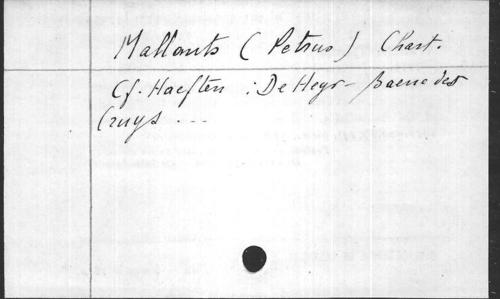 Mallants (Petrus) Chart.
Cf. Haeften : De Heyr-baene des
Cruys ...